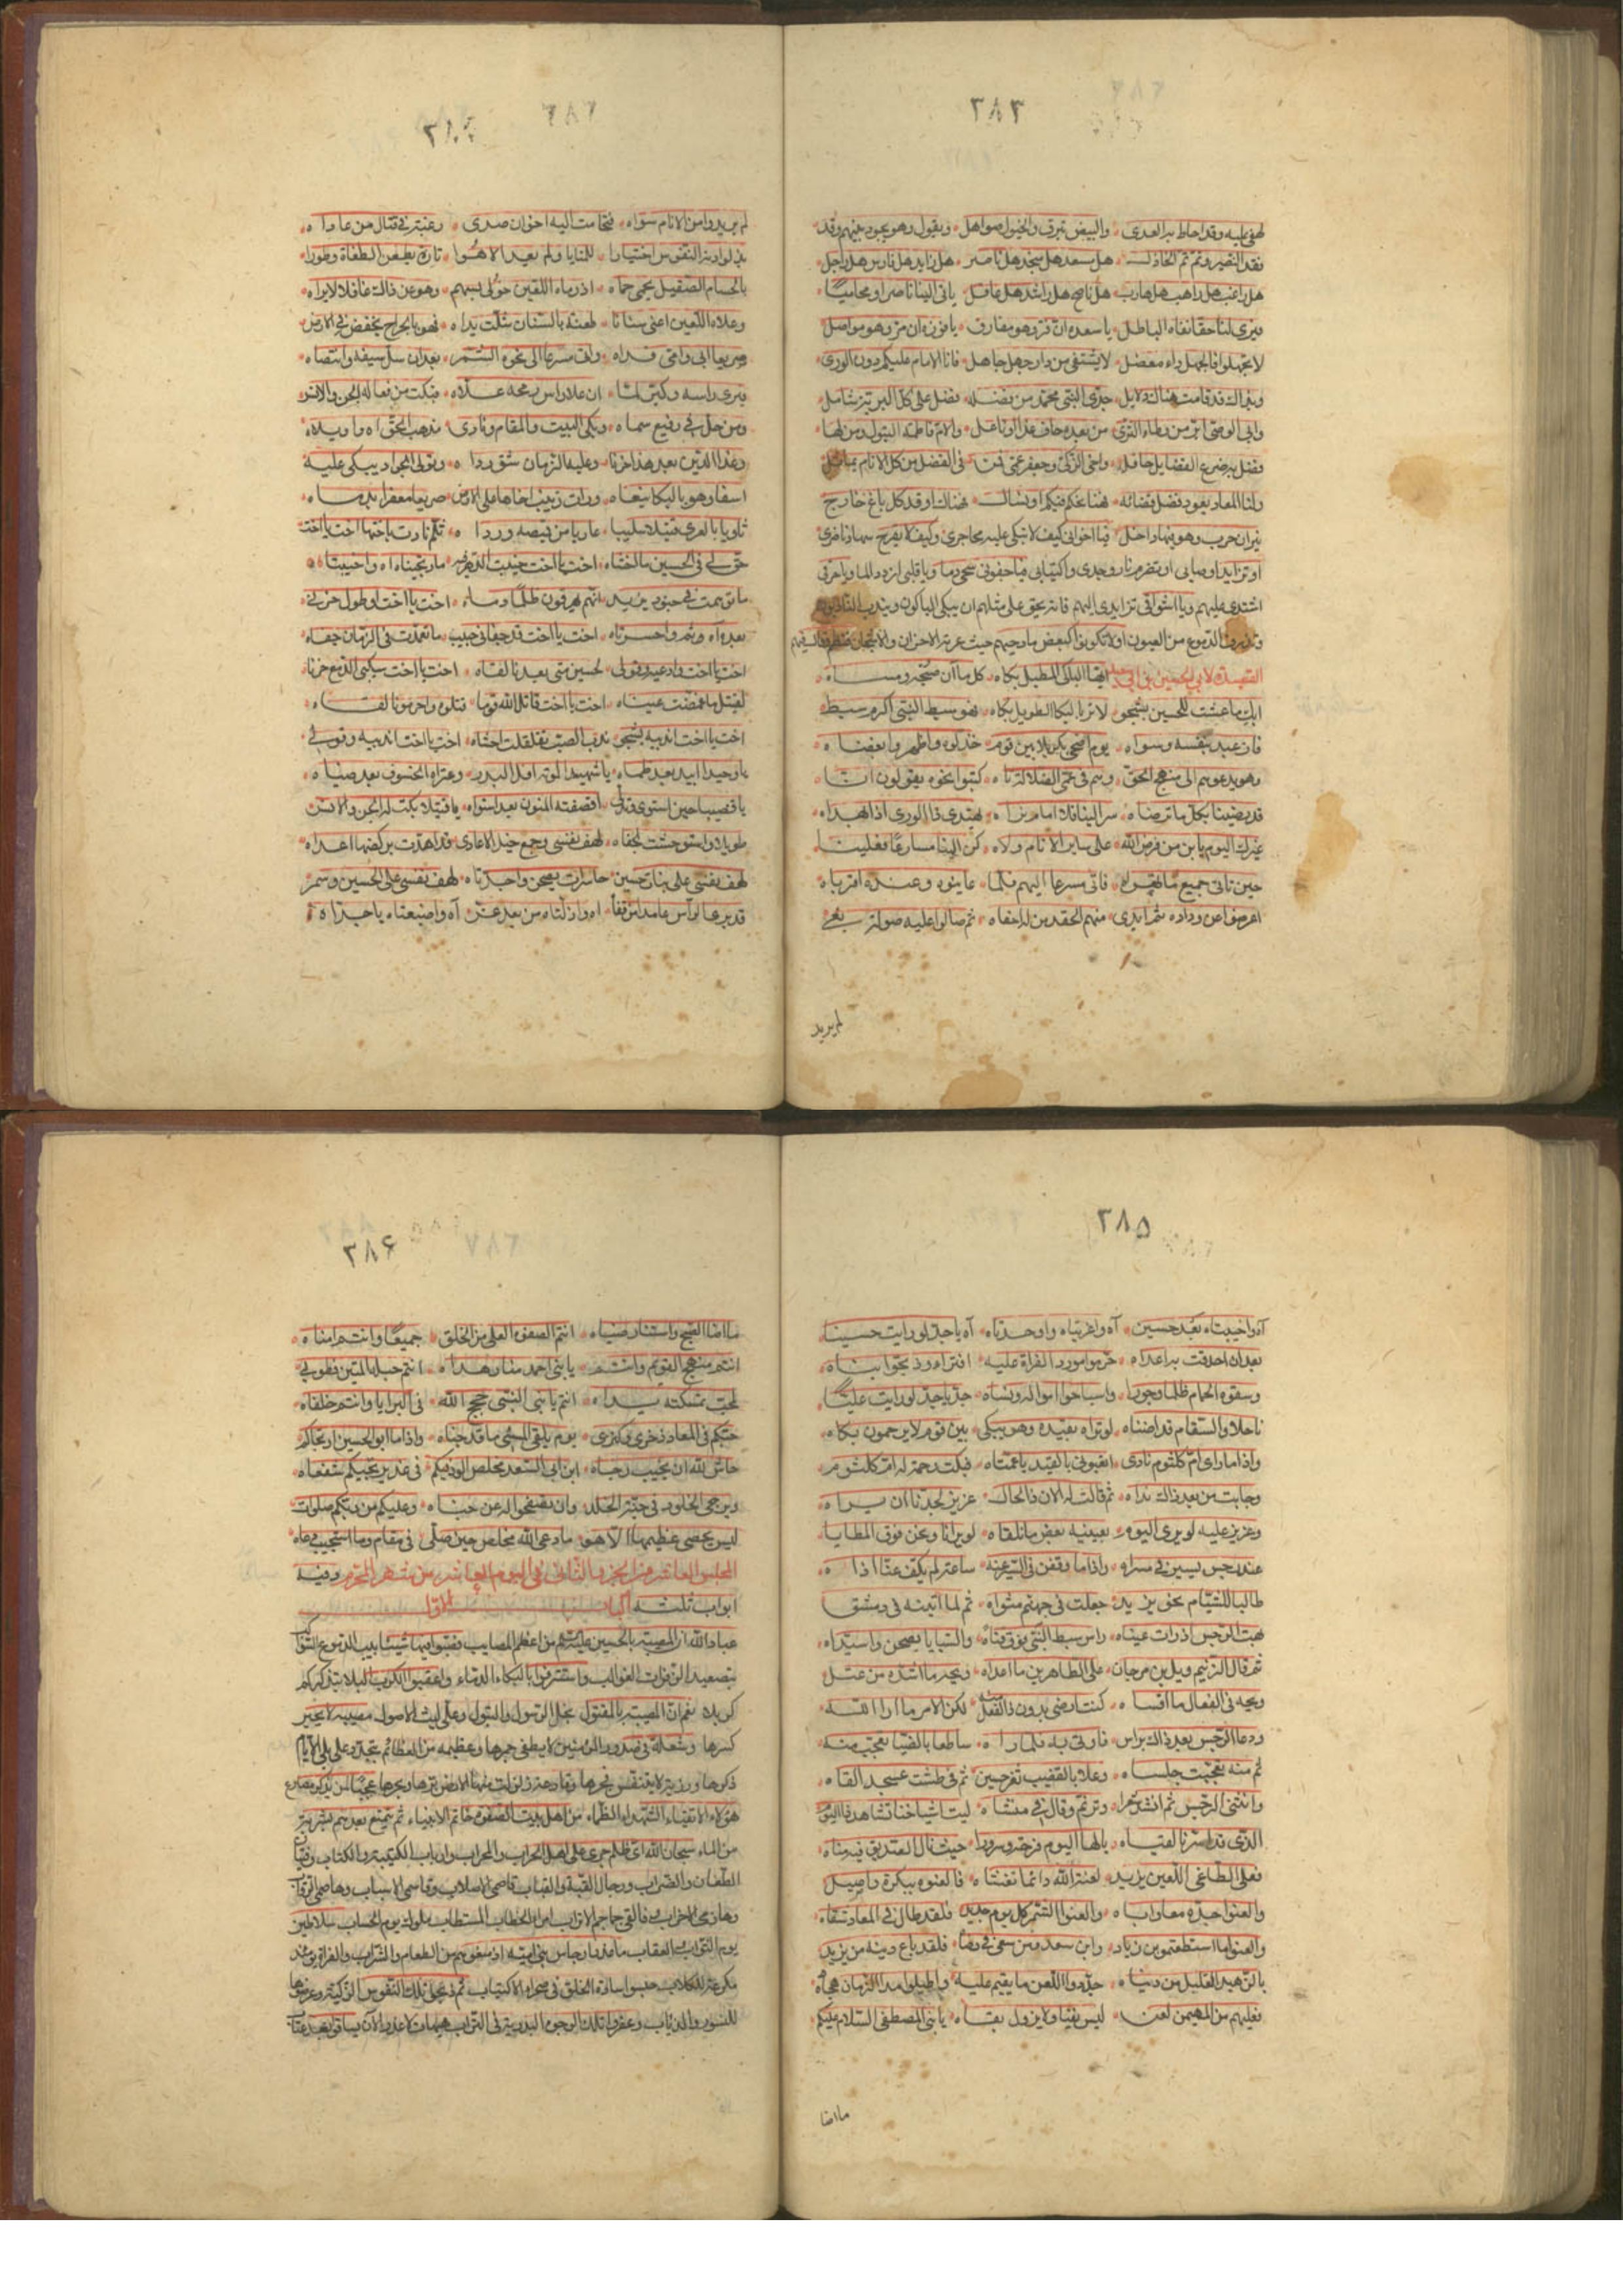 ٣٨٣
لهفي عليه وقد احاط به العدى والبيض تبرق والخيول صواهل ويقول وهو يجود فيهم وقد
فقد النصير وثم ثم الخاذل هل مسعد هل منجد هل ناصر هل زايد هل فارس هل راجل
هل راغب هل راهب هل هارب هل ناصح هل راشد هل عاقل ياتي الينا ناصرا ومحاميا
فيرى لنا حقا نفاه الباطل يا سعده ان قر وهو مفارق يا فوزه ان مر وهو مواصل
لا تجهلوا فالجهل داء معضل لا يشتفى من داء جهل جاهل فانا الامام عليكم دون الورى
وبذالك قد قامت هناك دلايل جدي النبي محمد من فضله فضل على كل البرية شامل
وابي الوصي اتم من وطاء الثرى من بعده حاف غدا او ناعل والام فاطمة البتول ومن لها
فضل به ضرع الفضايل حافل واخي الزكي وجعفر عمي فتى في الفضل من كل الانام
ولنا المعاد يعود فضل قضائه فهنا نحكم فيكم او نسائل فهناك اوقد كل باغ خارج
نيران حرب وهو فيها داخل فيا اخواني كيف لا تبكي عليه محاجري وكيف لا يقرح
او تزايد اوصابي او تضرم نار وجدي واكتيابي فيا جفوني سحي دما ويا قلبي ازدد الما ويا حرقي
اشتدي عليهم ويا اشواقي تزايدي اليهم فانه يحق على مثلهم ان يبكي الباكون ويندب النادبون
وتذرف الدموع من العيون او لا تكونوا كبعض مادحيهم حيث عرته الاحزان والاشجان فنظم وقال فيهم
القصيدة لابي الحسين بن ابي سعيد ايها الباكي المطيل بكاه كل ما ان صبحه ومساه
ابك ما عشت للحسين بشجو لا تري بالبكا الطويل بكاه فهو سبط النبي اكرم سبط
فاز عبد بنفسه وسواه يوم اضحى بكربلا بين قوم خذلوه واظهروا بغضاه
وهو يدعوهم الى منهج الحق وهم في عمى الضلالة تاه كتبوا نحوه يقولون انا
قد رضينا بكل ما ترضاه سر الينا فانت امام نراه يهتدي ذا الورى اذا نهداه
غيرك اليوم يا بن من فرض الله على ساير الانام ولاه كن الينا مسارعا فعلينا
حين تاتي جميع ما تهواه فاتى مسرعا اليهم فلما عاينوه وعنده اقرباه
اعرضوا عن وداده ثم ابدى منهم الحقد بن له اخفاه ثم صالوا عليه صولة بغي
لم يريد
٣٨٤
لم يريدوا من الانام سواه فتحامت اليه اخوان صدق رغبة في قتال من عاداه
بذلوا دونه النفوس اختيارا للمنايا ولم تعبد الا هوا تارة يطعن الطغاة وطورا
بالحسام الصقيل يحمي حماه اذ رماه اللعين خولى بسهم وهو عن ذالك غافلا لا يراه
وعلاه اللعين اعني سنانا طعنة بالسنان شلت يداه فهوى بالجراح يخفض في الارض
صريعا ابي وامي فداه واتى مسرعا الى نحوه الشمر بعد ان سل سيفه وانتضاه
فبرى راسه وكبر لما ان علا راس رمحه علاه فبكت من فعاله الجن والانس
ومن حل في رفيع سماه وبكى البيت والمقام ونادى مذهب الحق اه واويلاه
وغدا الدين بعد هذا حزينا وعليه الزمان شق رداه وتولى الجواد يبكي عليه
اسفا وهو بالبكا ينعاه ورات زينب اخاها على الارض صريعا معفرا بدماه
ثاويا بالعرى قتيلا سليبا عاريا من قميصه ورداه ثم نادت باختها اخت يا اخت
حق لي في الحسين ما الخشاه اخت يا اخت خيبت الدهر فيه ما رتجيناه اه واخيبتاه
ما رحمت في جنود يزيد انهم يهرقون ظلما دماه اخت يا اخت او طول حزني
بعده اه وثم واحسرتاه اخت يا اخت قد جفاني حبيب ما تعودت في الزمان جفاه
اخت يا اخت وادعيه وقولي لحسين متى بعيدنا لقاه اخت يا اخت سكبي الدمع حزنا
لقتيل ما غمضت عيناه اخت يا اخت قاتل الله قوما قتلوه واحرمونا لقاه
اخت يا اخت اندبيه بشجو ندب الصب تقلقلت احشاه اخت يا اخت اندبيه وقولي
يا وحيدا ابيد بعد ظماه يا شهيدا لموته افل البدر وعتراه الخسوف بعد ضياه
يا قضيبا حين استوى قدك اقصفته المنون بعد استواه يا قتيلا بكت له الجن والانس
طويلا واستوحشت لجفاه لهف نفسي وجمع خيل الاعادي قد اهدت بركضها اعداه
لهف نفسي على بنات حسين حاسرات يصحن واجدتاه لهف نفسي على الحسين وشمر
قد برى الراس عامدا من قفاه اه وا ذلتاه من بعد عز اه واضيعتاه يا جداه
٣٨٥
آه واخيبتاه بعد حسين آه واغربتاه واوحدتاه آه يا جد لو رايت حسينا
بعد ان احدقت به اعداه حرموا مورد الفرات عليه افتراء وذبحوا ابناه
وسقوه الحمام ظلما وجورا واسباحوا امواله ونساه جد يا جد لو رايت عليا
ناحلا والسقام قد اضناه لو تراه بقيده وهو يبكي بين قوم لا يرحمون بكاه
واذا ما راى ام كلثوم نادى انقبوني بالقيد يا عمتاه فبكت رحمة له ام كلثوم
وجابت من بعد ذالك نداه ثم قالت له الان ذا الحال عزيز لجدنا ان يراه
وعزيز عليه لو يرى اليوم بعينيه بعض ما نلقاه لو يرانا ونحن فوق المطايا
عند رجس يسير في مسراه واذا ما وقفن في السير عنه ساعة لم يكف عنا اذاه
طالبا للشئام نحو يزيد جعلت في جهنم مثواه ثم لما اتينه في دمشق
بهت الرجس اذ رات عيناه راس سبط النبي فوق قناة والسبايا يصحن واسيداه
ثم قال الزنيم ويل بن مرجان على الطاهرين ما اعداه ويحه ما اشده من عتل
ويحه في الفعال ما اقساه كنت ارضى بدون ذا الفعل لكن الامر ما اراد الله
ودعا الرجس بعد ذالك براس فاوتي به فلما راه ساطعا بالضيا تعجب منه
ثم منه تعجبت جلساه وعلا بالقضيب ثغر حسين ثم في طشت عسجد القاه
وانثنى الرجس ثم انشد شعرا وترنم وقال في منشاه ليت اشياخنا تشاهد ذا اليوم
الذي قد اسرنا لقياه يا لها اليوم فرحة وسرورا حيث نال العبد يق فيه مناه
فعلى الطاغي اللعين يزيد لعنة الله دائما تغشاه فالعنوه ببكرة واصيل
والعنوا جده معا واباه والعنوا الشمر كل يوم جديد فلقد طال في المعاد شقاه
والعنوا ما استطعتموا بن زياد وابن سعد ومن سعى في رضاه فلقد باع دينه من يزيد
بالزهيد القليل من دنياه جددوا اللعن ما بقيتم عليه واطيلوا مدا الزمان هجاه
فعليهم من المهيمن لعن ليس يفنا ولا يزول بقاه يا بني المصطفى السلام عليكم
ما اضا
٣٨۶
ما اضا الفجر واستنار ضياه انتم الصفوة العلى من الخلق جميعا وانتم امناه
انتم منهج القويم وانتم يا بني احمد منار هداه انتم حبله المتين فطوبى
لمحب تمسكته يداه انتم يا بني النبي حجج الله في البرايا وانتم خلفاه
حبكم في المعاد ذخري وكنزي يوم يلقى المسئ ما قد جناه واذا ما ابو الحسين ارتجاكم
حاش لله ان يخيب رجاه ابن ابي السعد مخلص الود فيكم في غد يرتجيكم شفعاه
ويرجى الخلود في جنة الخلد وان تصفحوا له عن خناه وعليكم من ربكم صلوات
ليس يحصى عظيمها الا هو ما دعى الله مخلص حين صلى في مقام وما استجيب دعاه
المجلس العاشر من الجزء الثاني في اليوم العاشر من شهر المحرم وفيه
ابواب ثلثة الباب الاول
عباد الله ان المصيبة بالحسين عليه السلم من اعظم المصايب فصبوا فيها شئابيب الدموع
بتصعيد الزفرات الغوالب واستنزفوا بالبكاء الدماء واعقبوا الكروب للبلا بتذكركم
كربلا فان المصيبة بالمقتول نجل الرسول والبتول وعلي ليث الاصول مصيبة لا يجبر
كسرها وشعلة في صدور المؤمنين لا يطفى جمرها وعظيمه من العظائم تتجدد على بلى الايام
ذكرها ورزية لا يتنفس فجرها وقادحة زلزلت منها الارض برها وبحرها عجبا لمن يذكر مصارع
هؤلاء الاتقياء الشهداء الظماء من اهل بيت الصفوة خاتم الانبياء ثم يتمتع بعدهم بشربة
من الماء سبحان الله اي ظلم جرى على اهل الحراب والمحراب وارباب الكتيبة والكتاب
الطعان والضراب ورجال القبة والقباب قاصمي الاصلاب وقاسمي الاسلاب
وهازمي الاحزاب وفالقي جماجم الاتراب امراء الخطاب المستطاب ملوك يوم الحساب سلاطين
يوم الثواب والعقاب ما فعل ارجاس بني امية اذ منعوهم من الطعام والشراب والفرات يومئذ
مكرعة للكلاب حبسوا سادة الخلق في صحراء الاكتئاب ثم ذبحوا تلك النفوس الزكية وعرضوها
للنسور والذئاب وعفروا تلك الوجوه البدرية في التراب هيهات لا عذر الآن يساق